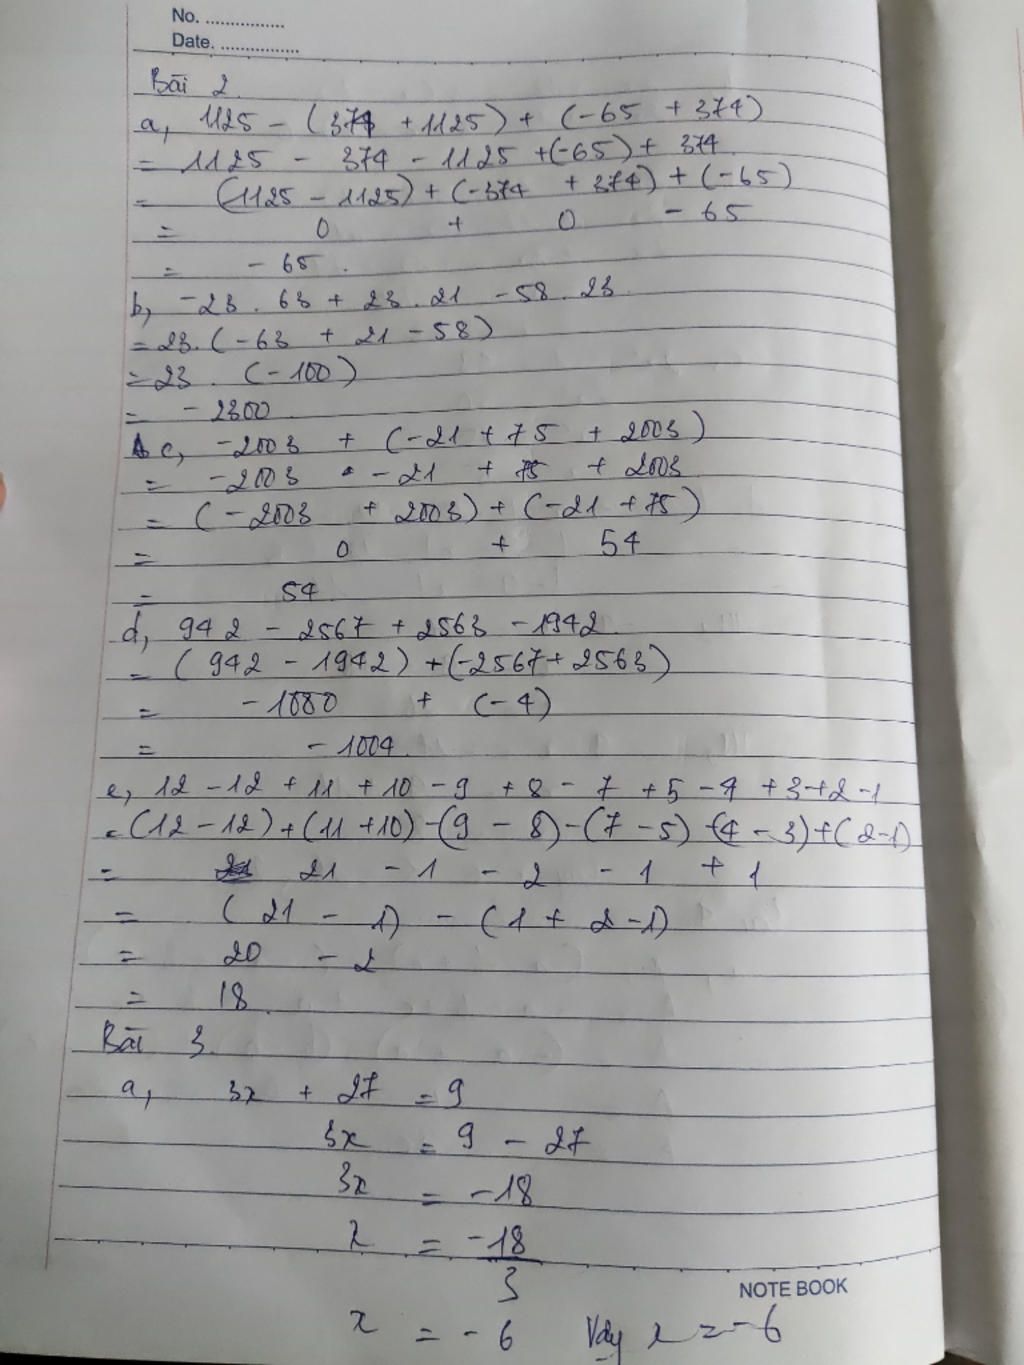 No. ...............
Date. ...............
Bài 2
a, 1125 - (374 + 1125) + (-65 + 374)
= 1125 - 374 - 1125 + (-65) + 374
= (1125 - 1125) + (-374 + 374) + (-65)
= 0 + 0 - 65
= - 65.
b, -23 . 63 + 23 . 21 - 58 . 23
= 23. (-63 + 21 - 58)
= 23 . (-100)
= - 2300
c, -2003 + (-21 + 75 + 2003)
= -2003 - 21 + 75 + 2003
= (-2003 + 2003) + (-21 + 75)
= 0 + 54
= 54
d, 942 - 2567 + 2563 - 1942
= (942 - 1942) + (-2567 + 2563)
= -1000 + (-4)
= -1004
e, 12 - 12 + 11 + 10 - 9 + 8 - 7 + 5 - 4 + 3 + 2 - 1
= (12 - 12) + (11 + 10) - (9 - 8) - (7 - 5) - (4 - 3) + (2 - 1)
= 21 - 1 - 2 - 1 + 1
= (21 - 1) - (1 + 2 - 1)
= 20 - 2
= 18.
Bài 3.
a, 3x + 27 = 9
3x = 9 - 27
3x = -18
x = -18
3
x = -6 Vậy x = -6
NOTE BOOK